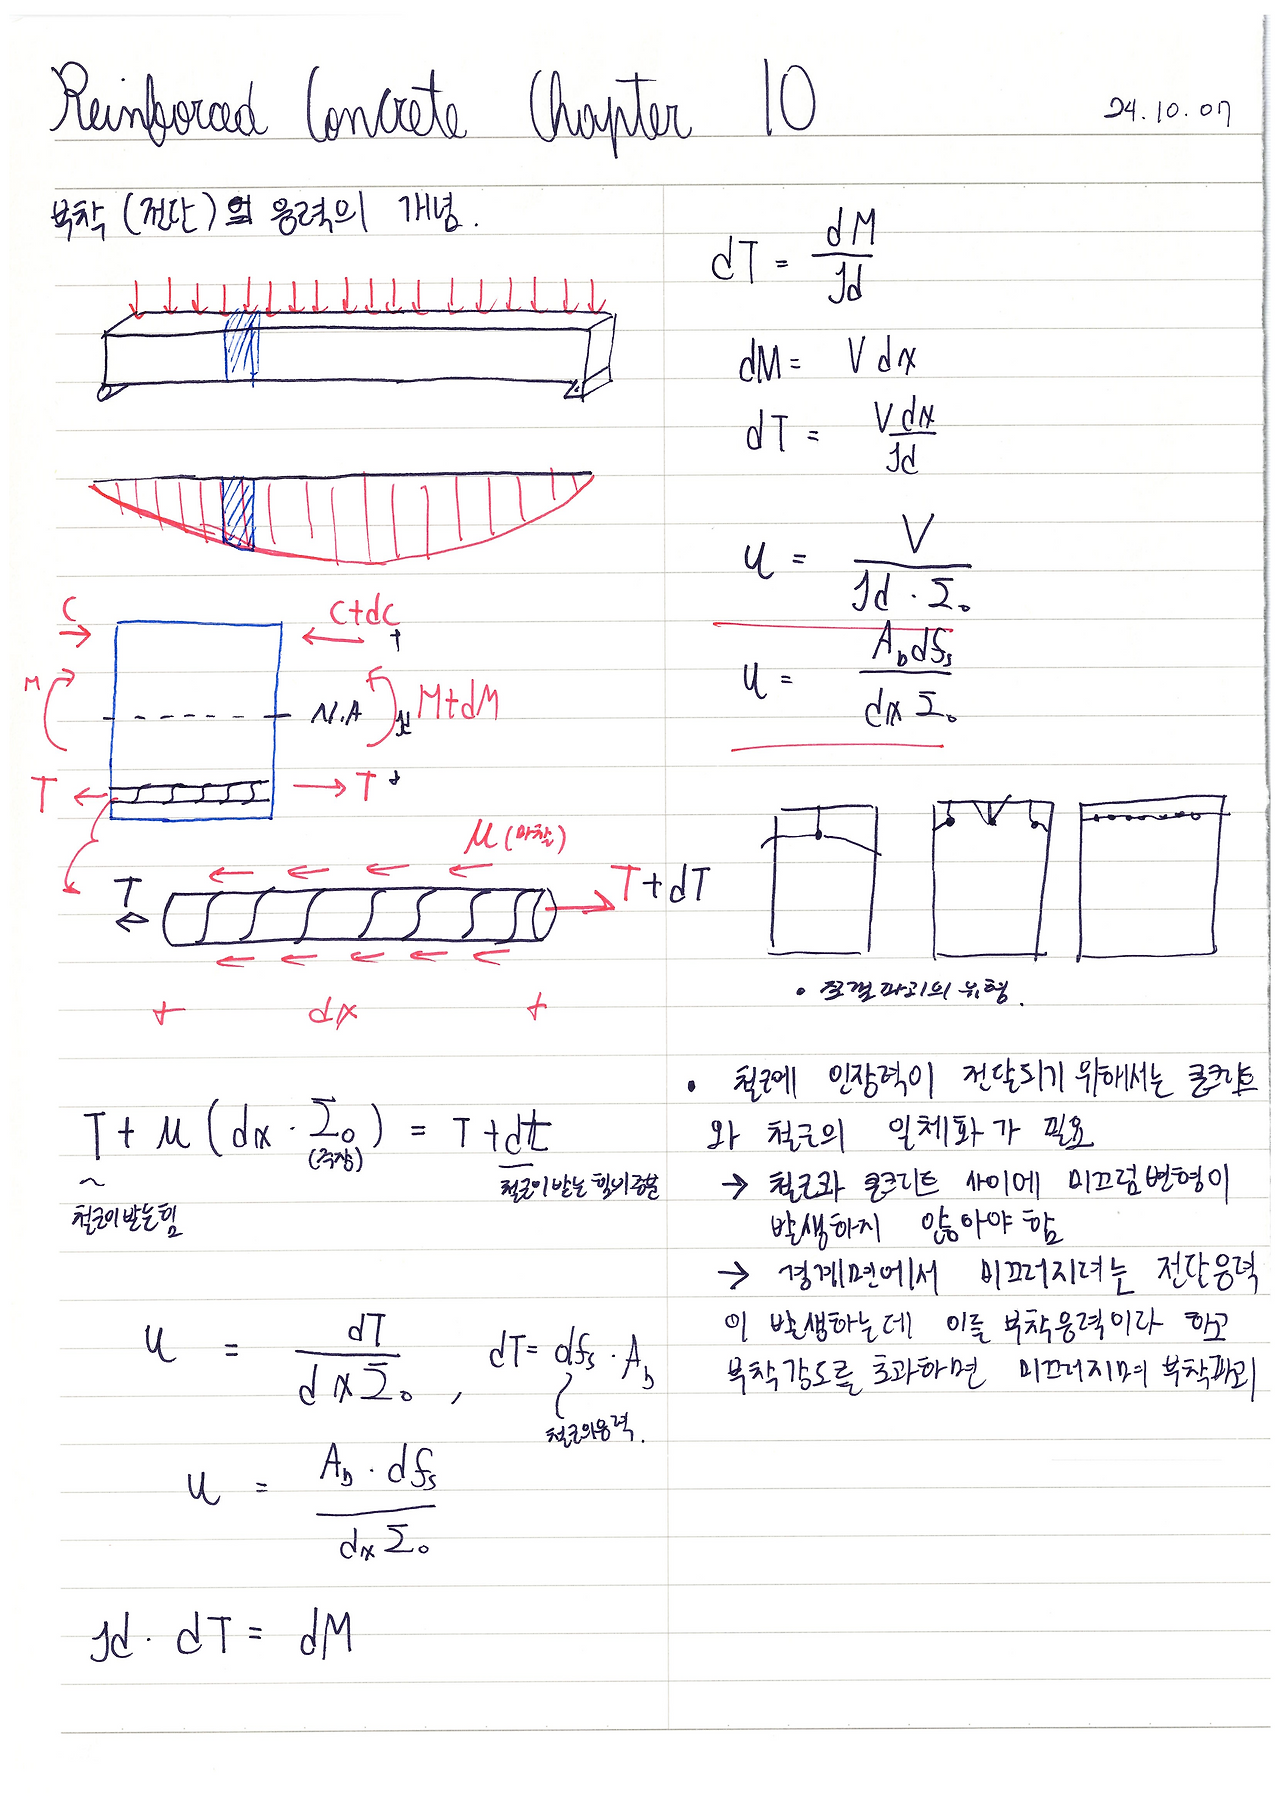 Reinforced Concrete Chapter 10
24.10.07
부착 (전단) 응력의 개념.
C
C+dC
M
N.A
jd
M+dM
T
T
μ (마찰)
T
T+dT
dx
T + μ (dx · Σo) = T+dt
(주장)
철근이 받는 힘의 증분
철근이 받는 힘
u = dT / dxΣo , dT = dfs · Ab
철근의 응력.
u = Ab · dfs / dxΣo
jd · dT = dM
dT = dM / jd
dM = V dx
dT = V dx / jd
u = V / jd · Σo
u = Ab dfs / dx Σo
• 쪼갬파괴의 유형.
• 철근에 인장력이 전달되기 위해서는 콘크리트
와 철근의 일체화가 필요
→ 철근과 콘크리트 사이에 미끄럼변형이
발생하지 않아야 함
→ 경계면에서 미끄러지려는 전단응력
이 발생하는데 이를 부착응력이라 하고
부착강도를 초과하면 미끄러지며 부착파괴